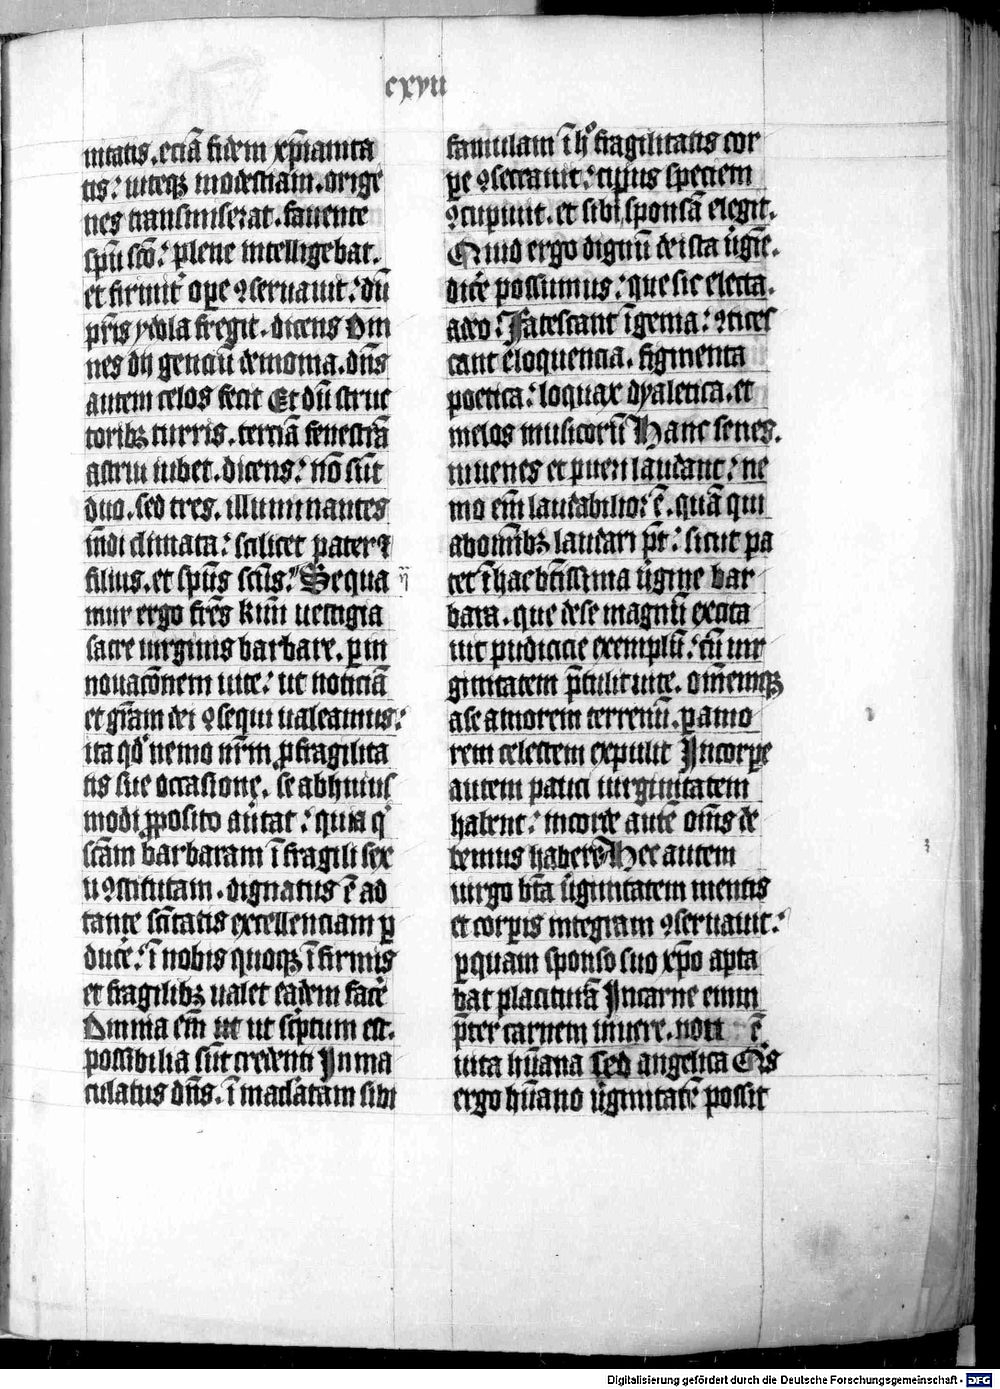 cxvii
nitatis. eciā fidem xp̄ianita
tis: uteqꝫ modestiam. orige
nes transmiserat. fauente
sp̄u sc̄o: plene intelligebat.
et firmit̾ ope ꝯseruauit: dū
pr̄is ydola fregit. dicens Om
nes dij genciū demonia. dn̄s
autem celos fecit Et dū struc
toribꝫ turris. terciā fenestrā
astrui iubet. dicens: nō sūt
duo. sed tres. illuminantes
mūdi climata: scilicet pater ⁊
filius. et sp̄us sc̄us: Sequa
mur ergo fr̄es km̄i uestigia
sacre uirginis barbare. ꝑ in
nouac̄onem uite: ut noticiā
et gr̄am dei ꝯsequi ualeamus:
ita qd̾ nemo nr̄m ꝓ fragilita
tis sue occasione. se ab huius
modi ꝓposito aūtat: quia q̾
sc̄am barbaram ī fragili sex
u ꝯstitutam. dignatus ē ad
tante sc̄itatis excellenciam ꝑ
duce̾: ī nobis quoqꝫ īfirmis
et fragilibꝫ ualet eadem face̾
Omnia em̄ ut ut sc̾ptum est.
possibilia sūt credenti In ma
culatus dn̄s. ī mac̄latam sibi
famulam ī hͦ fragilitatis cor
ꝑe ꝯsecrauit: cuius speciem
ꝯcupiuit. et sibi sponsā elegit.
Quid ergo dignū de ista u̾gīe.
dice̾ possumus: que sic electa.
a deo: Fatescant īgenia: ꝯtices
cant eloquencia. figmenta
poetica: loquax dyaletica. et
melos musicorū Hanc senes.
iuuenes et pueri laudant: ne
mo em̄ laudabilior ē. quā qui
ab om̄ibꝫ laudari pt̄: sicut pa
tet ī hac bt̄issima u̾gine bar
bara. que de se magnū excita
uit pudicicie exemplū: cū uir
ginitatem p̄tulit uite. om̄emqꝫ
a se amorem terrenū. ꝑ amo
rem celestem expulit In corꝑe
autem pauci uirginitatem
habent: in corde autē om̄s de
bemus habere Hec autem
uirgo bt̄a u̾ginitatem mentis
et corꝑis integram ꝯseruauit:
ꝑ quam sponso suo xp̄o apta
bat placiturā In carne enim
p̄ter carnem uiuere. non ē
uita hūana sed angelica Q̾s
ergo hūano u̾ginitatē possit
Digitalisierung gefördert durch die Deutsche Forschungsgemeinschaft - DFG